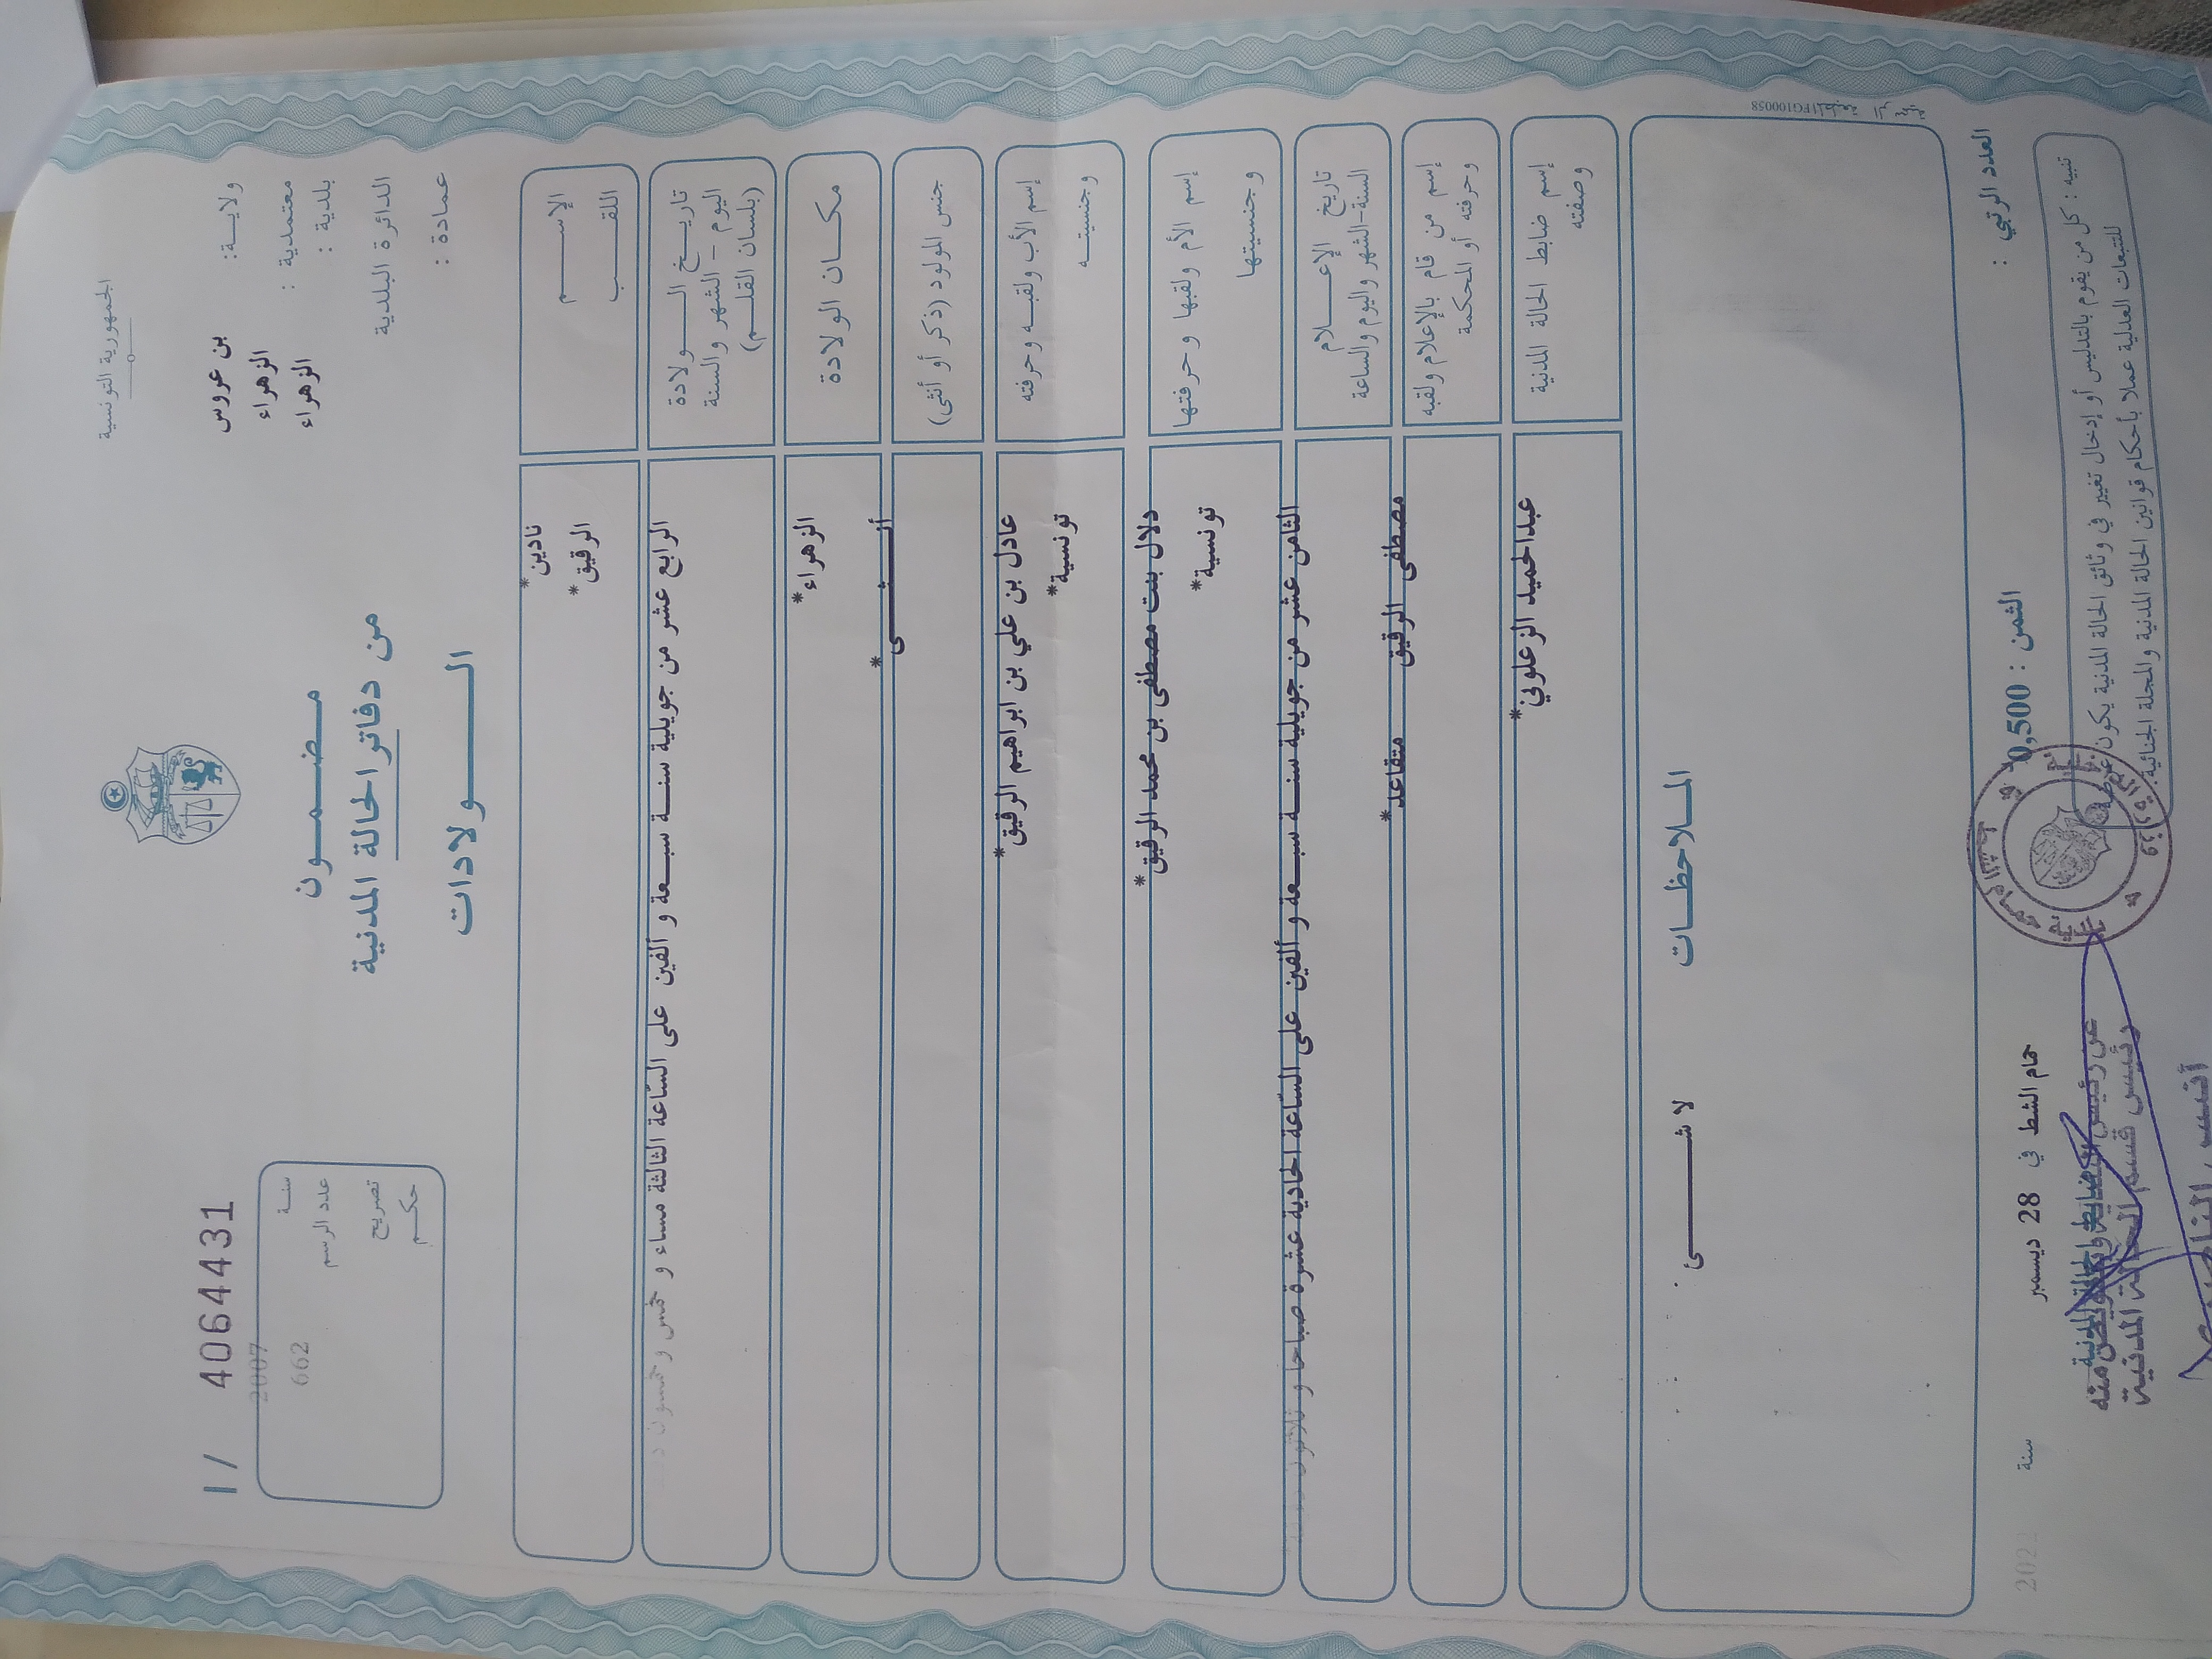 الجمهورية التونسية
ولاية: بن عروس
معتمدية : الزهراء
بلدية : الزهراء
الدائرة البلدية
عمادة :
مضمون
من دفاتر الحالة المدنية
الولادات
I/ 40644431
سنة 2007
عدد الرسم 662
تصريح
حكم
الإسم نادين*
اللقب الرقيق*
تاريخ الولادة
اليوم - الشهر والسنة
(بلسان القلم)
الرابع عشر من جويلية سنة سبعة و ألفين على السّاعة الثالثة مساء و خمس و خمسون د
مكان الولادة الزهراء*
جنس المولود (ذكر أو أنثى) أنثى*
إسم الأب ولقبه وحرفته عادل بن علي بن ابراهيم الرقيق*
وجنسيته تونسية*
إسم الأم ولقبها وحرفتها دلال بنت مصطفى بن محمد الرقيق*
وجنسيتها تونسية*
تاريخ الإعلام
السنة-الشهر واليوم والساعة
الثامن عشر من جويلية سنة سبعة و ألفين على السّاعة الحادية عشرة صباحا و ثلاثون
إسم من قام بالإعلام ولقبه
وحرفته أو المحكمة
مصطفى الرقيق متقاعد*
إسم ضابط الحالة المدنية
وصفته
عبدالحميد الزعلوني*
الملاحظات
لا شئ
FG100058
العدد الرتبي :
الثمن : 0,500
حمام الشط في 28 ديسمبر سنة
تنبيه : كل من يقوم بالتدليس أو إدخال تغيير في وثائق الحالة المدنية يكون عرضة
للتتبعات العدلية عملا بأحكام قوانين الحالة المدنية والمجلة الجنائية.
ضابط الحالة المدنية
عن رئيس وبتفويض منه
رئيس قسم الحالة المدنية